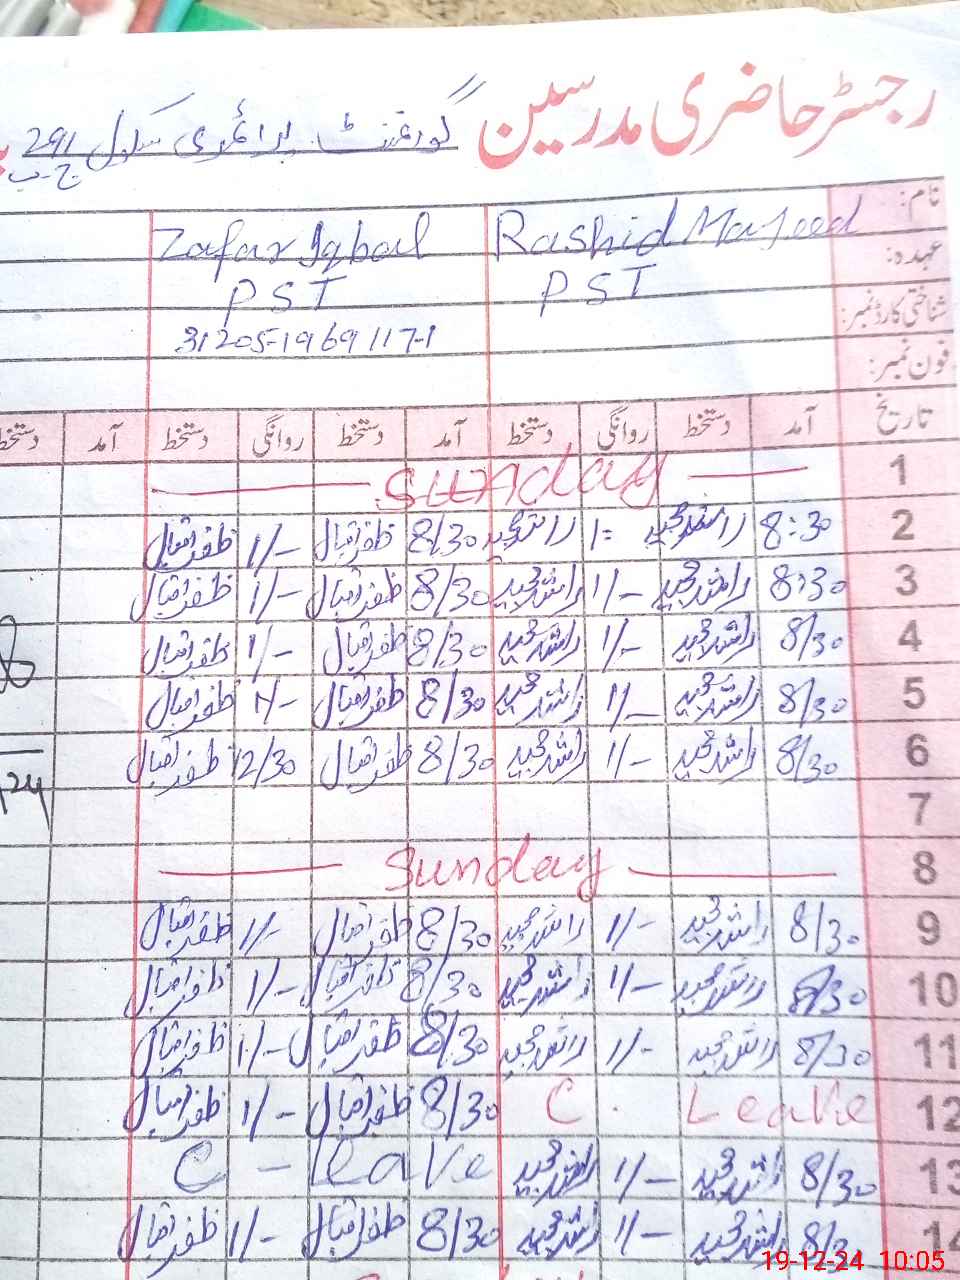 رجسٹر حاضری مدرسین گورنمنٹ پرائمری سکول 291 ج-ب
نام: Rashid Majeed Zafar Iqbal
عہدہ: PST PST
شناختی کارڈ نمبر: 31205-1969117-1
فون نمبر:
تاریخ آمد دستخط روانگی دستخط آمد دستخط روانگی دستخط آمد دستخط
1 Sunday
2 8:30 راشد مجید 1= راشد مجید 8/30 ظفر اقبال 1/- ظفر اقبال
3 8:30 راشد مجید 1/- راشد مجید 8/30 ظفر اقبال 1/- ظفر اقبال
4 8/30 راشد مجید 1/- راشد مجید 8/30 ظفر اقبال 1/- ظفر اقبال
5 8/30 راشد مجید 1/- راشد مجید 8/30 ظفر اقبال 1/- ظفر اقبال
6 8/30 راشد مجید 1/- راشد مجید 8/30 ظفر اقبال 12/30 ظفر اقبال
7
8 Sunday
9 8/30 راشد مجید 1/- راشد مجید 8/30 ظفر اقبال 1/- ظفر اقبال
10 8/30 راشد مجید 1/- راشد مجید 8/30 ظفر اقبال 1/- ظفر اقبال
11 8/30 راشد مجید 1/- راشد مجید 8/30 ظفر اقبال 1/- ظفر اقبال
12 C. Leave 8/30 ظفر اقبال 1/- ظفر اقبال
13 8/30 راشد مجید 1/- راشد مجید C - leave
14 8/3 راشد مجید 1/- راشد مجید 8/30 ظفر اقبال 1/- ظفر اقبال
19-12-24 10:05